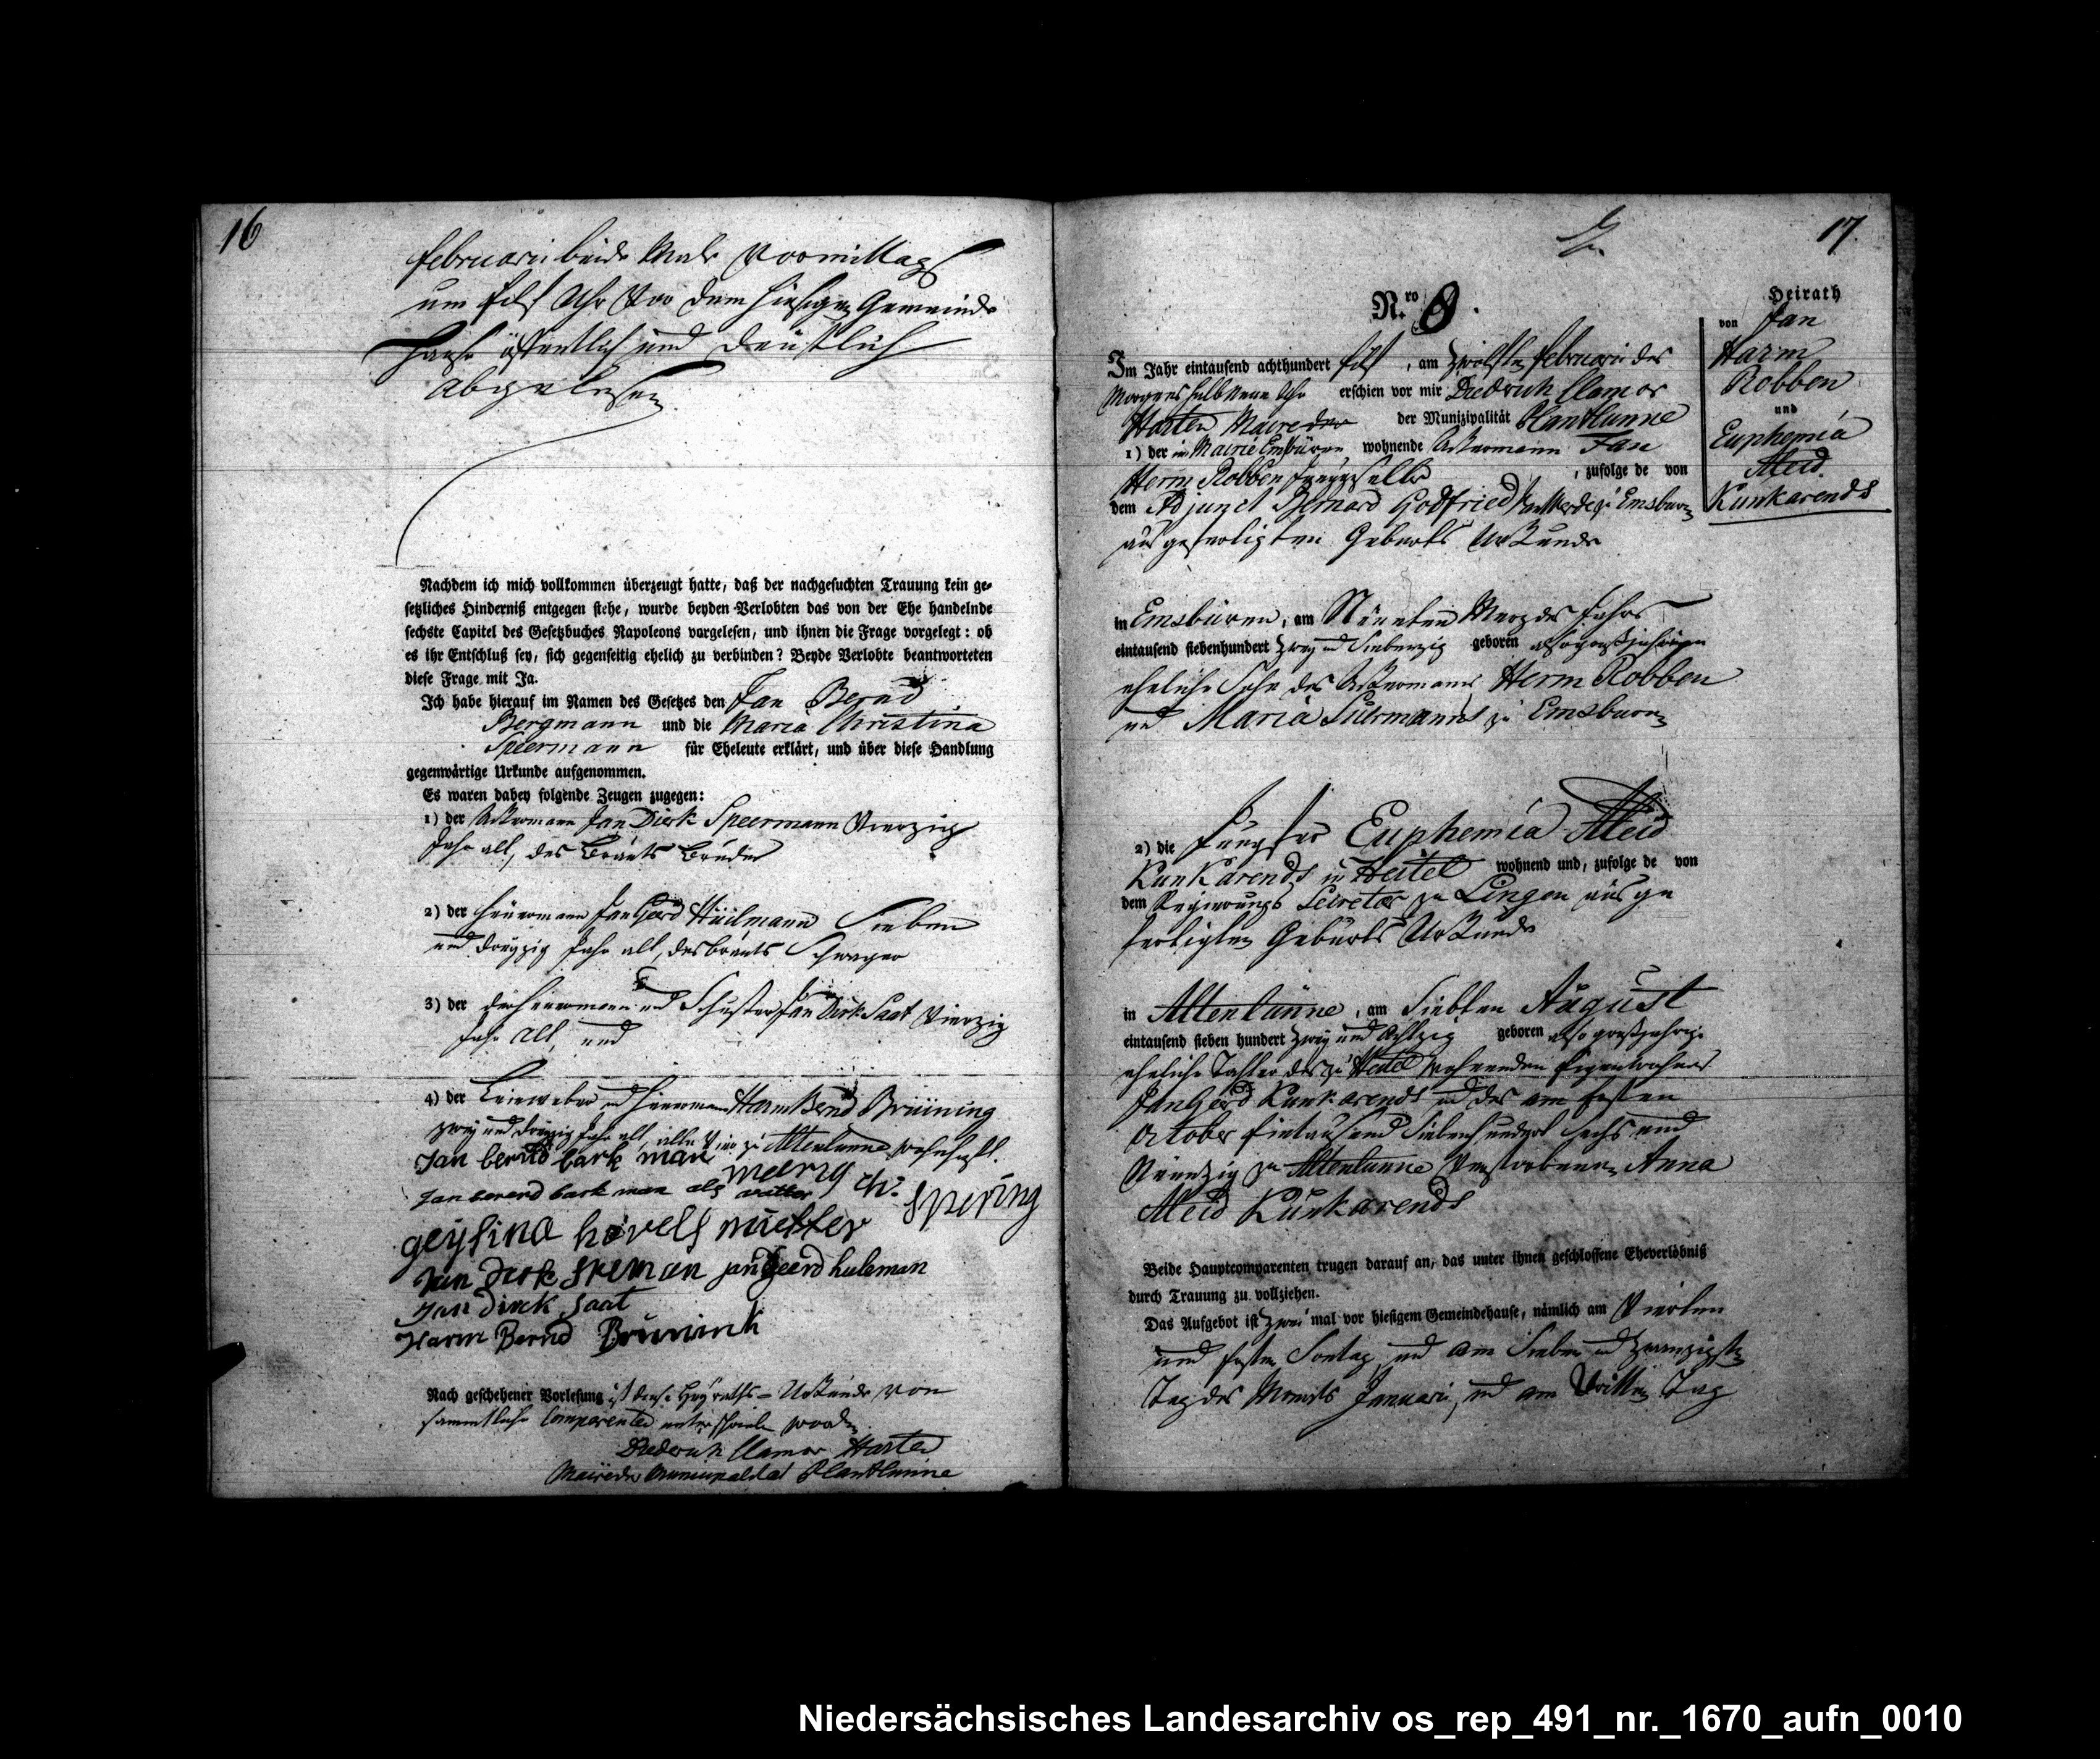 16
februari beide Male Vormittags
um Eilf Uhr Vor dem hiesigen Gemeinde
Hause öffentlich und deutlich
abgelesen
Nachdem ich mich vollkommen überzeugt hatte, daß der nachgesuchten Trauung kein ge-
setzliches Hinderniß entgegen stehe, wurde beyden Verlobten das von der Ehe handelnde
sechste Capitel des Gesetzbuches Napoleons vorgelesen, und ihnen die Frage vorgelegt: ob
es ihr Entschluß sey, sich gegenseitig ehelich zu verbinden? Beyde Verlobte beantworteten
diese Frage mit Ja.
Ich habe hierauf im Namen des Gesetzes den Jan Bernd
Bergmann und die Maria Christina
Speermann für Eheleute erklärt, und über diese Handlung
gegenwärtige Urkunde aufgenommen.
Es waren dabey folgende Zeugen zugegen:
1) der Ackermann Jan Dierk Speermann Vierzig
Jahr alt, des Brauts Bruder
2) der Heuermann Jan Gerd Hüilmann Sieben
und dreyzig Jahr alt, des brauts Schwager
3) der Heuermann und Schuster Jan Dirk Saat Vierzig
Jahr alt, und
4) der Leinweber und Heuermann Harm Bernd Brüining
zwey und dreyzig Jahr alt, alle Vier zu Altenlunne wohnhaft.
Jan bernd bark man
Jan berend bark man als vatter
marig ch. spering
geysina hövels mutter
Jan Dirk speman jan geerd huleman
Jan dirck saat
Harm Bernd Brunink
Nach geschehener Vorlesung ist diese Heyraths-Urkunde von
sammtliche Comparenten unterschrieben worden
Diederich Clamor Harten
Maire der Municipalität Plantlünne
17.
Heirath
von Jan
Harm
Robben
und
Euphemia
Aleid
Kunkarends
N.ro 8.
Im Jahr eintausend achthundert Eilf, am Zwölften februari des
Morgens halb Neun Uhr erschien vor mir Diedrich Clamor
Harten Maire der der Munizipalität Plantlunne
1) der in Mairie Emsbüren wohnende Ackermann Jan
Herm Robben Junggeselle, zufolge de von
dem Adjunct Bernard Godfried zu Emsburen
ausgefertigten Geburts Urkunde
in Emsbüren, am Neunten Merz des Jahrs
eintausend siebenhundert Zwey und Siebenzig geboren also großjährigen
eheliche Sohn des Ackermanns Herm Robben
und Maria Suermanns zu Emsburen
2) die Jungfer Euphemia Aleid
Kunkarends in Heitel wohnend und, zufolge de von
dem Regierungs Secretär zu Lingen ausge
fertigten Geburts Urkunde
in Altenlünne, am Siebten August
eintausend sieben hundert Zwey und Achtzig geboren also großjährige
eheliche Tochter des zu Heitel wohnenden Eigenwohner
Jan Gerd Kunkarends und der am Ersten
October Eintausend Siebenhundert Sechs und
Neunzig zu Altenlunne Verstorbenen Anna
Aleid Kunkarends
Beide Hauptcomparenten trugen darauf an, das unter ihnen geschlossene Eheverlöbniß
durch Trauung zu vollziehen.
Das Aufgebot ist Zwei mal vor hiesigem Gemeindehause, nämlich am Vierten
und Ersten Sontag und am Sieben und zwanzigsten
Tag des Monats Januari, und am Dritten Tag
Niedersächsisches Landesarchiv os_rep_491_nr._1670_aufn_0010